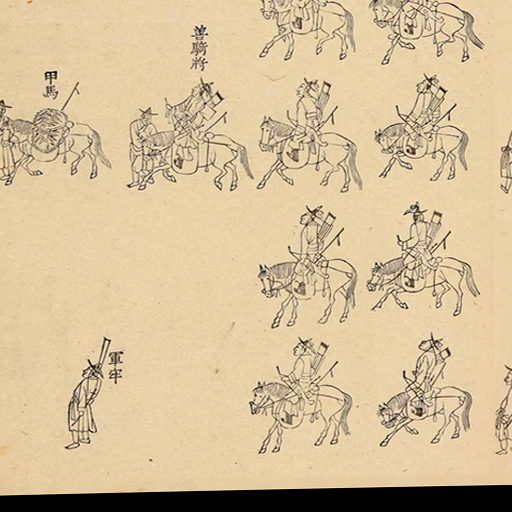 善騎將
甲馬
軍牢